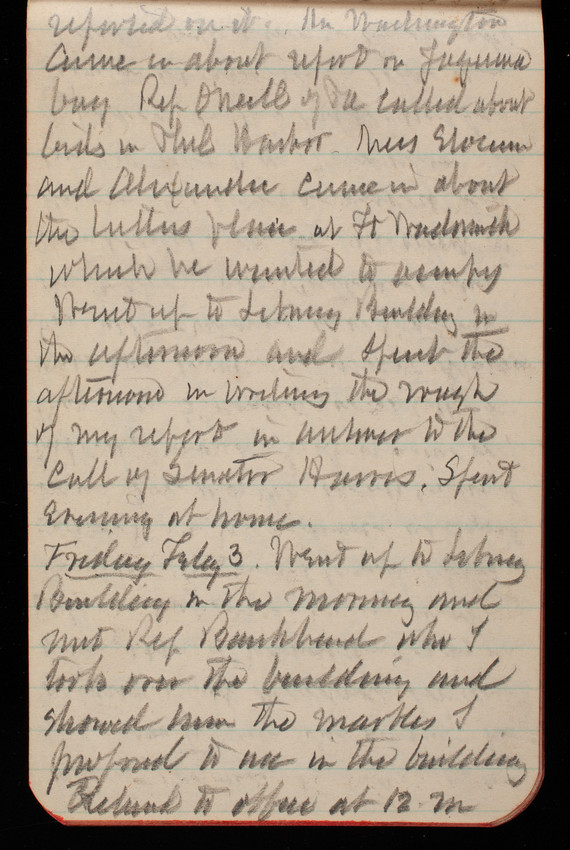 reported on it. Mr Washington
came in about report on Yaquina
bay Rep O'Neill of Pa called about
lights in Phil Harbor. Miss Slocum
and Alexander came in about
the Sutlers place at Ft Wadsworth
which he wanted to occupy
Went up to Library Building in
the afternoon and spent the
afternoon in writing the rough
of my report in answer to the
call of Senator Harris. Spent
Evening at home.
Friday Feby 3. Went up to Library
Building in the morning and
met Rep Bankhead who I
took over the building and
showed him the marbles I
proposed to use in the building
Retund to office at 12 m